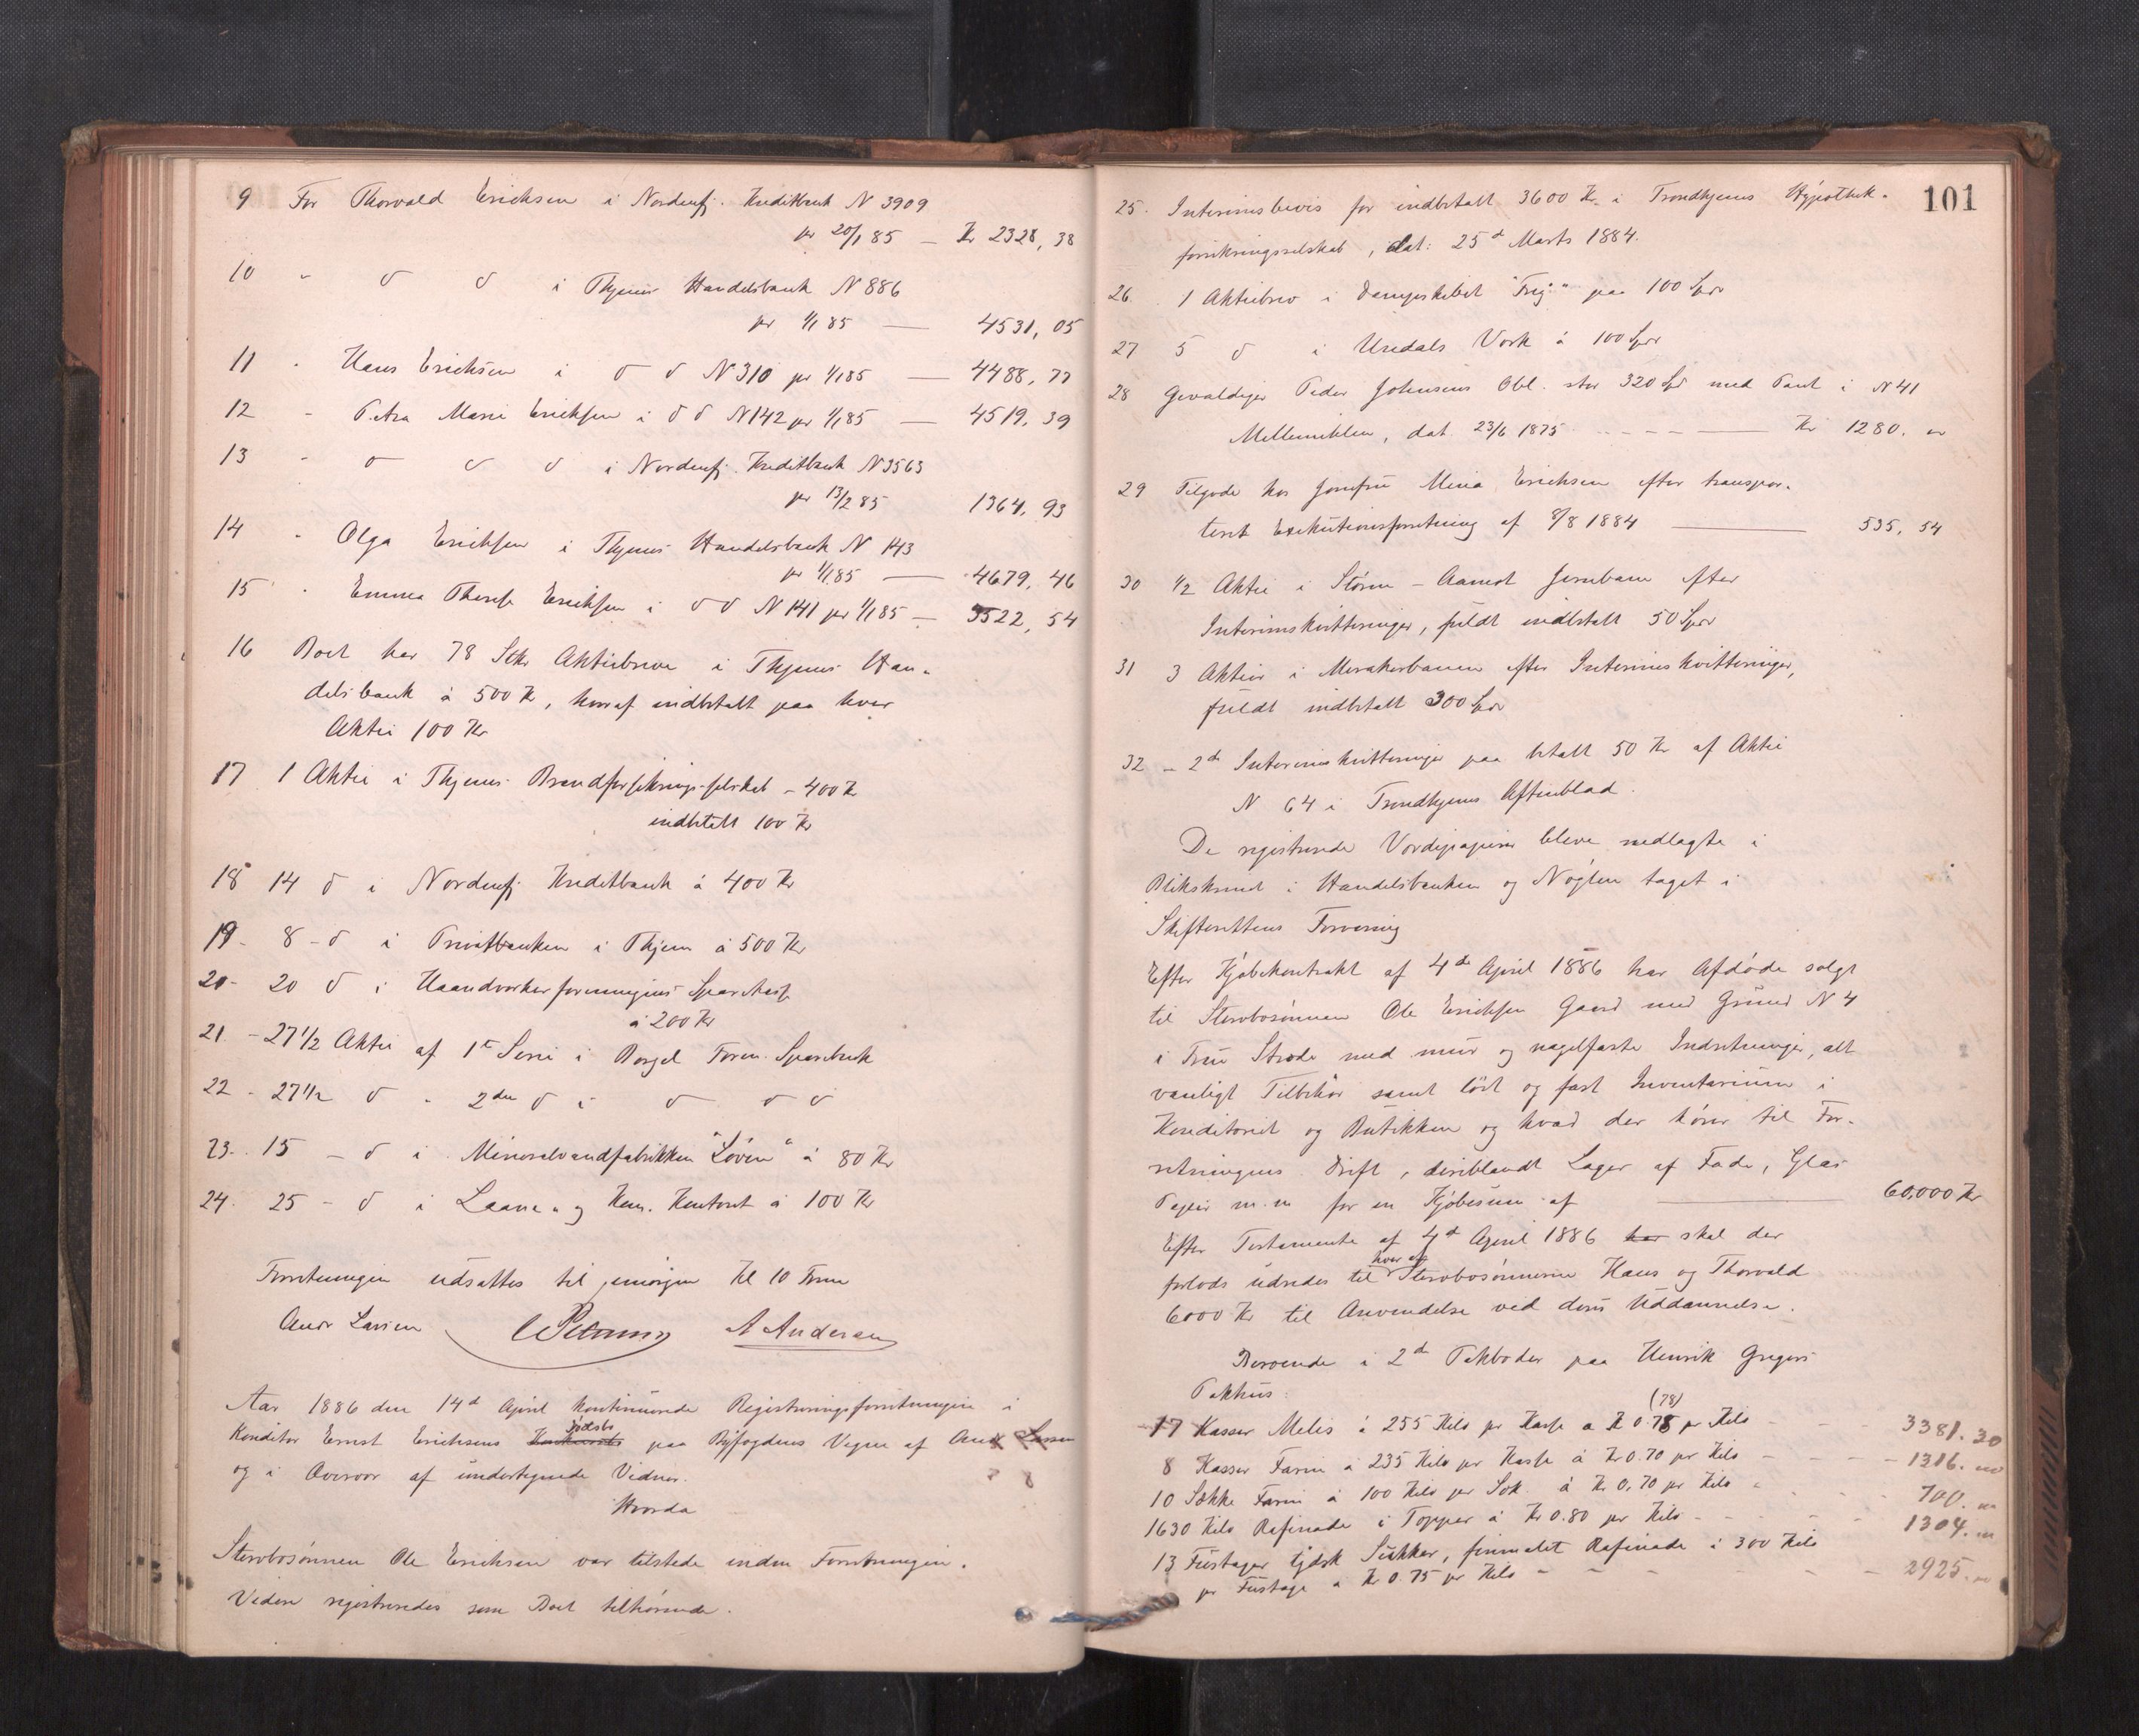 9 For Thorvald Erichsen i Nordenfj. Kreditbank N 3909
pr 20/1 85 — Kr 2328,38
10 " d d i Thjems Handelsbank N 886
pr 1/1 85 — 4531,05
11 " Hans Erichsen i d d N 310 pr 1/1 85 — 4488,77
12 " Petra Marie Erichsen i d d N 142 pr 1/1 85 — 4519,39
13 " d d d i Nordenfj. Kreditbank N 3563
pr 13/2 85 1364,93
14 " Olga Erichsen i Thjems Handelsbank N 143
pr 1/1 85 — 4679,46
15 " Emma Therese Erichsen i d d N 141 pr 1/1 85 — 3522,54
16 Boet har 78 Stkr Aktiebreve i Thjems Han-
delsbank á 500 Kr, hvoraf indbetalt paa hver
Aktie 100 Kr
17 1 Aktie i Thjems Brandforsikrings-selskab - 400 Kr
indbetalt 100 Kr
18 14 d i Nordenfj Kreditbank á 400 Kr
19 - 8 - d i Privatbanken i Thjem á 500 Kr
20 - 20 d i Haandværkerforeningens Sparekasse
á 200 Kr
21. - 27 1/2 Aktie af 1ste Serie i Borgel Foren. Sparebank
22 - 27 1/2 d " 2den d i d d d
23. 15 - d i Mineralvandfabrikken "Løven" á 80 Kr
24. 25 - d i Laane- og Kom. Kontoret á 100 Kr
Forretningen udsattes til imorgen Kl 10 Form
Andr Larsen A Andersen
Aar 1886 den 14de April kontinuerede Registreringsforretningen i
Konditor Ernst Erichsens Dødsbo paa Byfogdens Vegne af Andr Larsen
og i Overvær af undertegnede Vidner.
Hvorda
Stervbosønnen Ole Erichsen var tilstede under Forretningen.
Videre registreredes som Boet tilhørende.
101
25. Interimsbevis for indbetalt 3600 Kr i Trondhjems Hypothek-
forsikringsselskab, dat: 25de Marts 1884.
26. 1 Aktiebrev i Dampskibet "Trig" paa 100 Spdr
27 5 d i Uredals Værk á 100 Spdr
28 Gevaldiger Peder Johnsens Obl. stor 320 Spd med Pant i N 41
Mellemiklen, dat 23/6 1875 - - - — Kr 1280. "
29 Tilgode hos Jomfru Mina Erichsen efter transpor-
teret Exekutionsforretning af 8/8 1884 — 535,54
30 1/2 Aktie i Støren - Aamot Jernbane efter
Interimskvitteringer, fuldt indbetalt 50 Spdr
31 3 Aktier i Merakerbanen efter Interimskvitteringer,
fuldt indbetalt 300 Spdr
32 - 2de Interimskvitteringer paa betalt 50 Kr af Aktie
N 64 i Trondhjems Aftenblad.
De registrerede Værdipapirer bleve nedlagte i
Blikskrinet i Handelsbanken og Nøglen taget i
Skifterettens Forvaring
Efter Kjøbekontrakt af 4de April 1886 har Afdøde solgt
til Stervbosønnen Ole Erichsen Gaard med Grund N 4
i Frue Stræde med mur og nagelfaste Indretninger, alt
vanligt Tilbehør samt løst og fast Inventarium i
Konditoriet og Butikken og hvad der hører til For-
retningens Drift, deriblandt Lager af Fade, Glas
Papir m.m for en Kjøbesum af — 60,000 Kr
Efter Testamente af 4de April 1886 har skal der
forlods udredes til hver af Stervbosønnerne Hans og Thorvald
6000 Kr til Anvendelse ved deres Uddannelse.
Beroende i 2de Pakboder paa Henrik Gregers
Pakhus:
(78)
17 Kasser Melis á 255 Kilo pr Kasse a Kr 0.78 pr Kilo - - - 3381.30
8 Kasser Farin á 235 Kilo pr Kasse á Kr 0.70 pr Kilo - - - 1316. "
10 Sække Farin á 100 Kilo pr Sæk. á Kr 0,70 pr Kilo - - - 700. "
1630 Kilo Rafinade i Topper á Kr 0.80 pr Kilo - - - 1304. "
13 Fustager tydsk Sukker, finmalet Rafinade á 300 Kilo
pr Fustage a Kr 0.75 pr Kilo - - - 2925. "